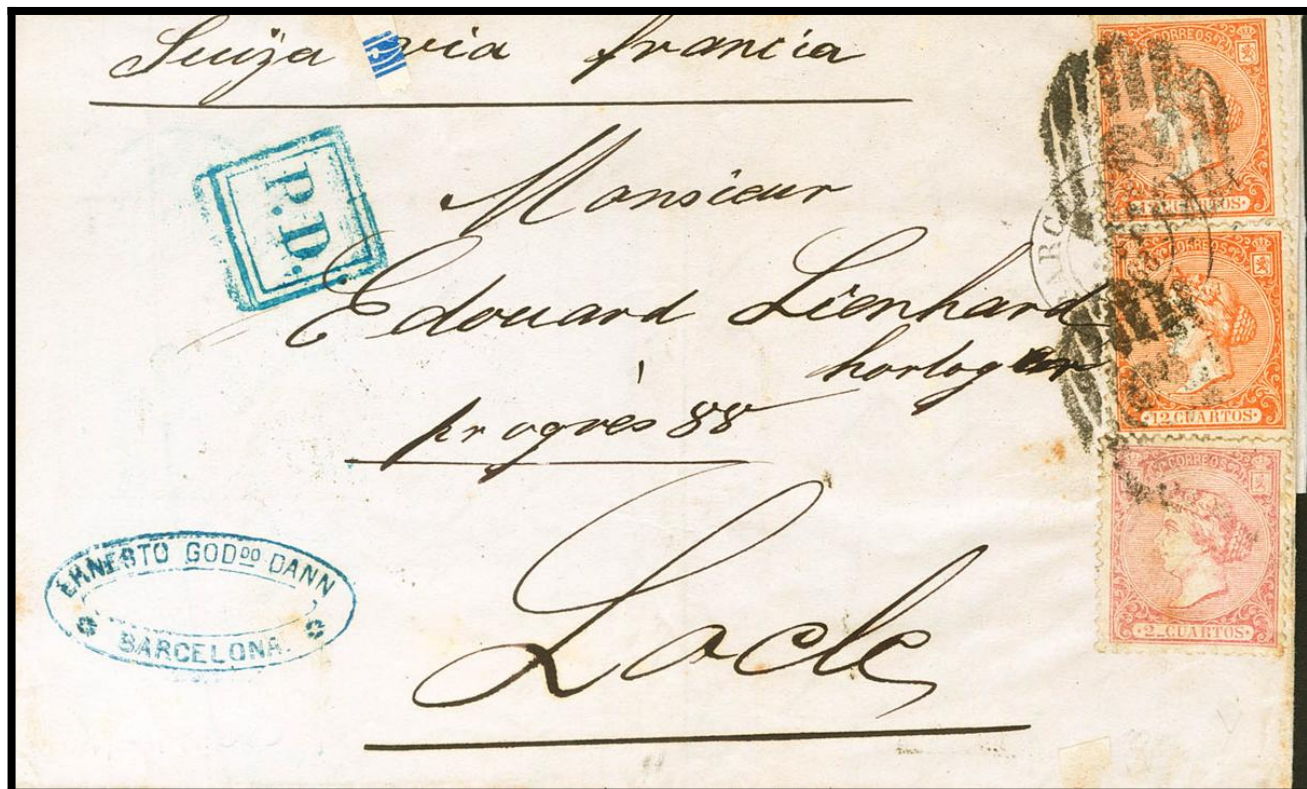 Suiza via francia
P.D.
Monsieur
Edouard Lienhard
horloger
progrès 88
Locle
ERNESTO GODOO DANN
BARCELONA.
CORREOS
12 CUARTOS
CORREOS
12 CUARTOS
CORREOS
2 CUARTOS